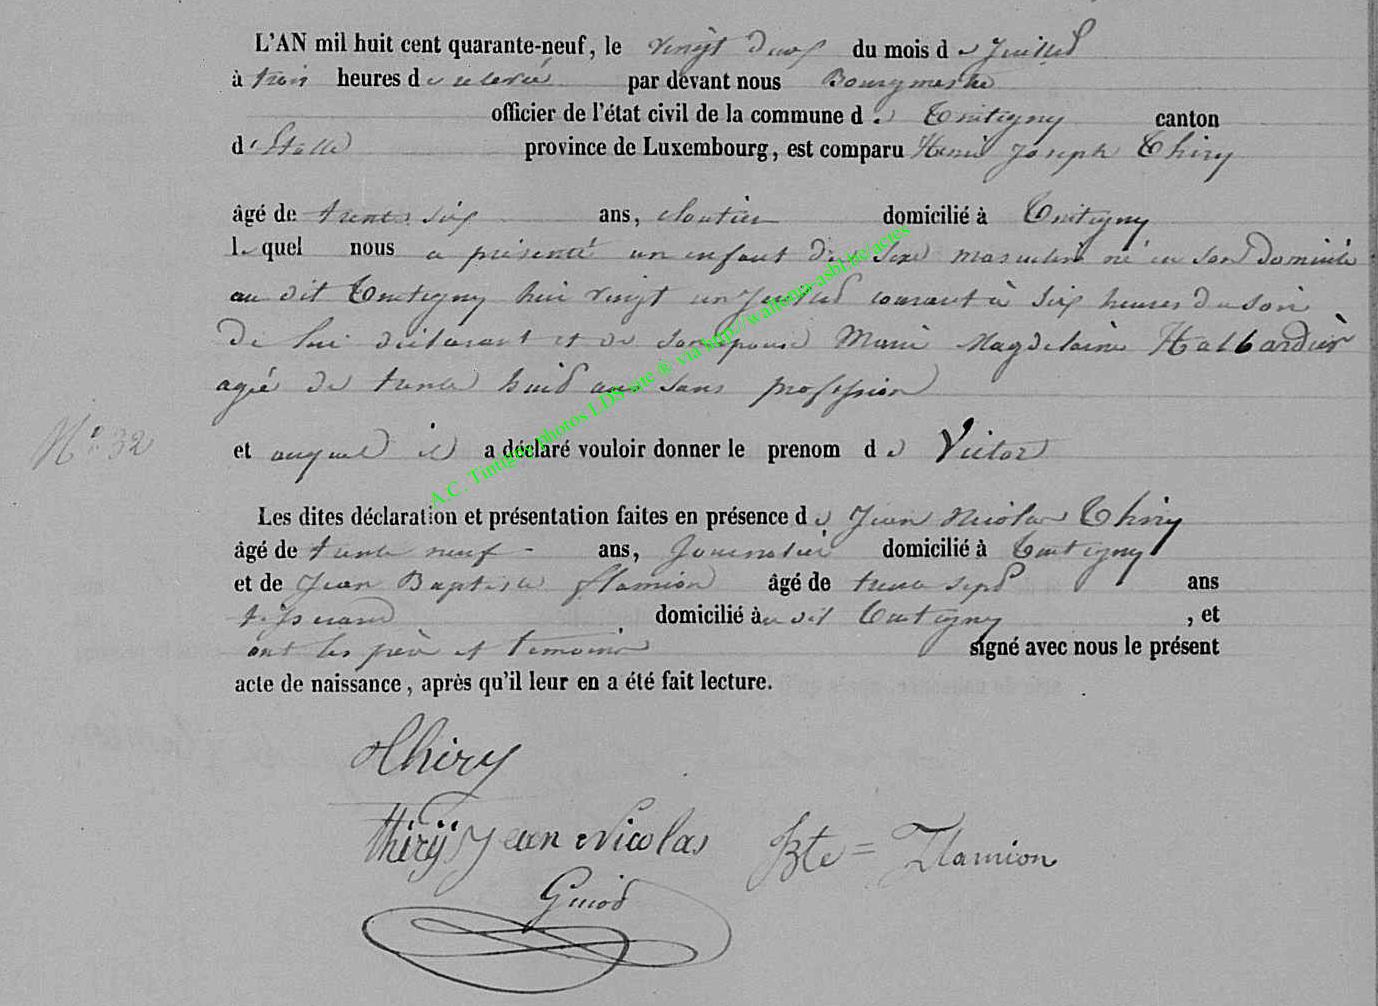 L'AN mil huit cent quarante-neuf, le vingt deux du mois de Juillet
à trois heures de relevée par devant nous Bourgmestre
officier de l'état civil de la commune de Tintigny canton
d'Etalle province de Luxembourg, est comparu Henri Joseph Thiry
âgé de trente six ans, cloutier domicilié à Tintigny
lequel nous a présenté un enfant du sexe masculin né en son domicile
au dit Tintigny hier vingt un Juillet courant à six heures du soir
de lui déclarant et de son épouse Marie Magdelaine Halbardier
agée de trente huit ans sans profession
N° 32
et auquel il a déclaré vouloir donner le prenom de Victor
Les dites déclaration et présentation faites en présence de Jean Nicolas Thiry
âgé de trente neuf ans, Journalier domicilié à Tintigny
et de Jean Baptiste Flamion âgé de trente sept ans
tisserand domicilié au dit Tintigny, et
ont les père et temoins signé avec nous le présent
acte de naissance, après qu'il leur en a été fait lecture.
Thiry
Thirÿ Jean Nicolas Bte = Flamion
Guiot
A.C. Tintigny photos LDS site ® via http://wallonia-asbl.be/actes